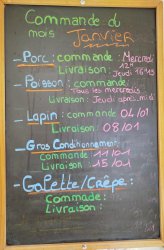 Commande du
mois Janvier
- Porc : commande : Mercredi
Livraison : Jeudi
- Poisson : commande :
Tous les mercredis
Livraison : Jeudi après-midi
- Lapin : commande 04/01
Livraison 08/01
- Gros Conditionnement
Commande : 11/01
Livraison : 15/01
- Galette/Crêpe :
Commade :
Livraison :